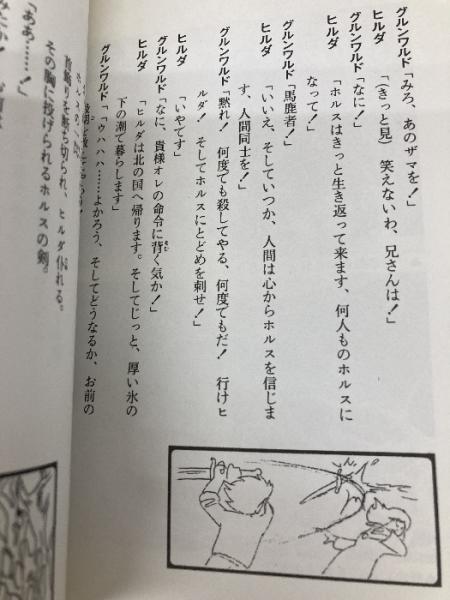 グルンワルド「みろ、あのザマを！」
ヒルダ「（きっと見）笑えないわ、兄さんは！」
グルンワルド「なに！」
ヒルダ「ホルスはきっと生き返って来ます、何人ものホルスに
なって！」
グルンワルド「馬鹿者！」
ヒルダ「いいえ、そしていつか、人間は心からホルスを信じま
す、人間同士を！」
グルンワルド「黙れ！何度でも殺してやる、何度でもだ！行けヒ
ルダ！そしてホルスにとどめを刺せ！」
ヒルダ「いやです」
グルンワルド「なに、貴様オレの命令に背く気か！」
ヒルダ「ヒルダは北の国へ帰ります。そしてじっと、厚い氷の
下の潮で暮らします」
グルンワルド「ウハハハ……よかろう、そしてどうなるか、お前の
首飾りを断ち切られ、ヒルダ仆れる。
その胸に投げられるホルスの剣。
「ああ……！」